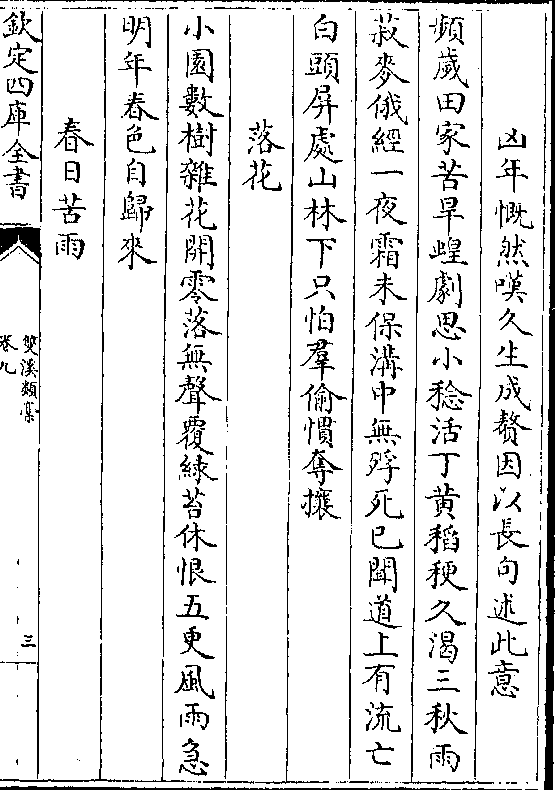 凶年慨然嘆久生成贅因以長句述此意
頻歲田家苦旱蝗劇思小稔活丁黄稻稉久渴三秋雨
菽麥俄經一夜霜未保溝中無殍死已聞道上有流亡
白頭屏處山林下只怕羣偷慣奪攘
落花
小園數樹雜花開零落無聲覆緑苔休恨五更風雨急
明年春色自歸來
春日苦雨
欽定四庫全書
雙溪類藁
卷九
三